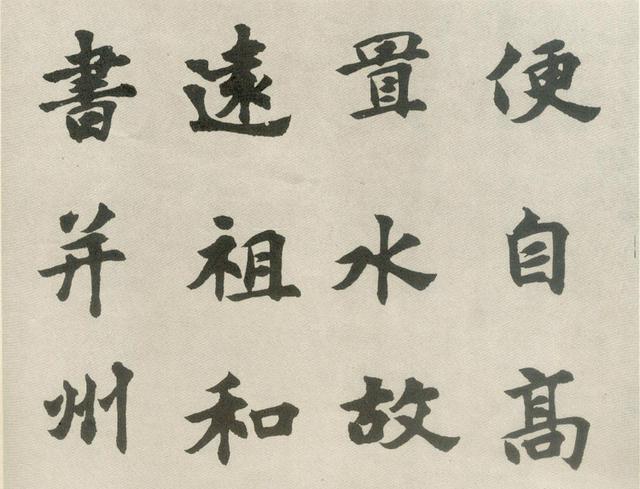 便自髙
置水故
遠祖和
書并州